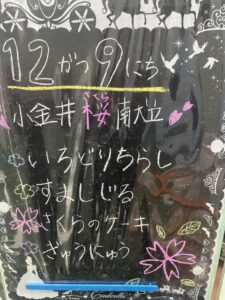 12がつ9にち
小金井桜南大立
さくら
いろどりちらし
すましじる
さくらのケーキ
ぎゅうにゅう
Cinderella